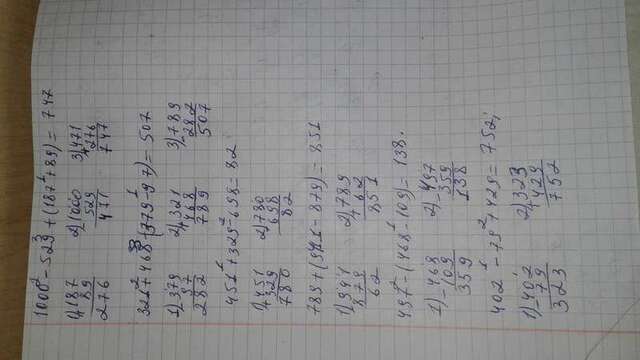 1000 ²- 529 ³+ (187 ¹+ 89) = 747
1) 187 2) 1000 3) 471
+ 89 - 529 + 276
276 471 747
321 ²+ 468 ³- (379 ¹- 97) = 507
1) 379 2) 321 3) 789
- 97 + 468 - 282
282 789 507
451 ¹+ 329 ²- 698 = 82
1) 451 2) 780
+ 329 - 698
780 82
789 + (941 - 879) = 851
1) 941 2) 789
- 879 + 62
62 851
497 ²- (468 ¹- 109) = 138.
1) 468 2) 497
- 109 - 359
359 138
402 ¹- 79 ²+ 429 = 752;
1) 402 2) 323
- 79 + 429
323 752